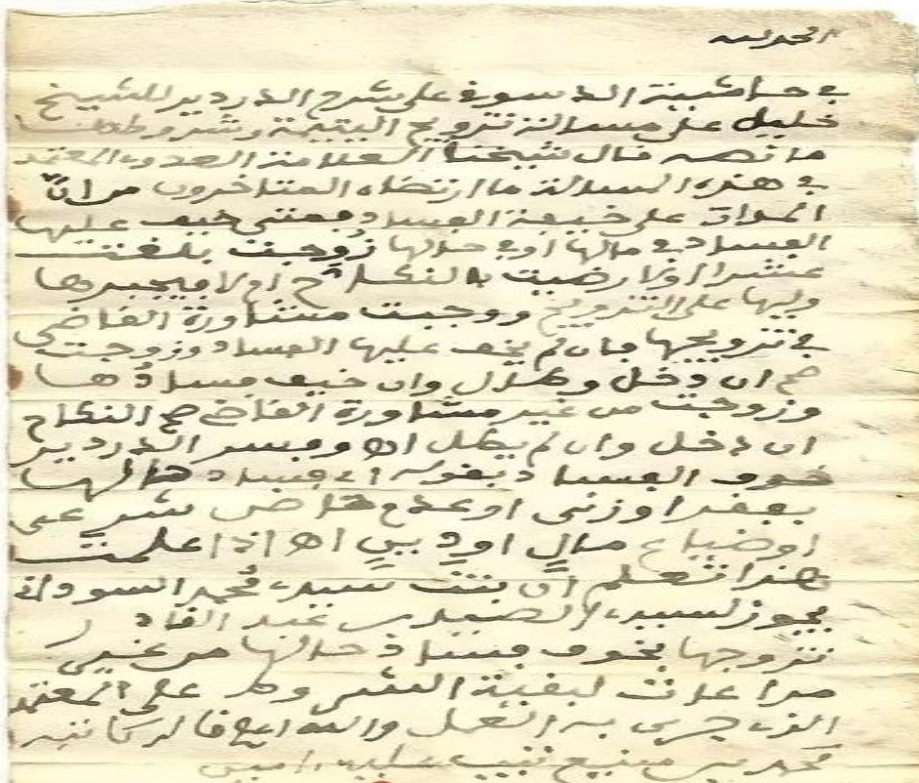 الحمد لله
في حاشية الدسوقي على شرح الدردير للشيخ
خليل على مسالة تزويج اليتيمة وشروطها
ما نصه قال شيخنا العلامة العدوي المعتمد
في هذه المسالة ما ارتضاه المتاخرون من ان
المدار على خيفة الفساد فمتى خيف عليها
الفساد في مالها او في حالها زوجت بلغت
عشرا او لا رضيت بالنكاح ام لا فيجبرها
وليها على التزويج ووجبت مشاورة القاضي
في تزويجها فان لم يخف عليها الفساد وزوجت
صح ان دخل وطال وان خيف فسادها
وزوجت من غير مشاورة القاضي صح النكاح
ان دخل وان لم يطل اه وفسر الدردير
خوف الفساد بقوله اي فساد حالها
بفقر او زنى او عدم حاضن شرعي
او ضياع مال او دين اه اذا علمت
هذا تعلم ان بنت سيد محمد السوداني
يجوز لسيد الصديق بن عبد القادر
تزوجها بخوف فساد حالها من غير
مراعات لبقية الشروط على المعتمد
الذي جرى به العمل والله اعلم قاله كاتبه
محمد بن منيع تيب عليه امين